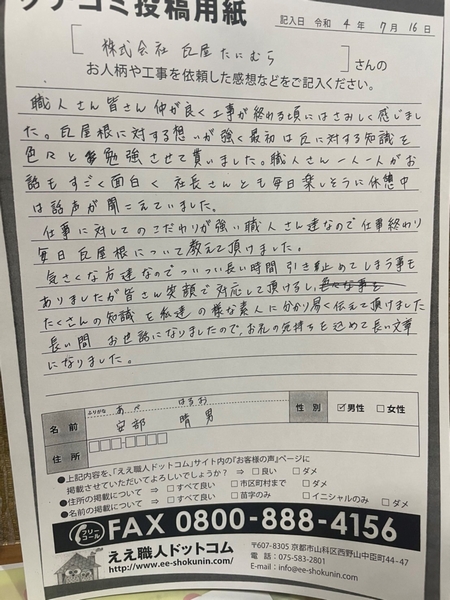 クチコミ投稿用紙
記入日 令和 4年 7月 16日
株式会社 瓦屋たにむら さんの
お人柄や工事を依頼した感想などをご記入ください。
職人さん皆さん仲が良く工事が終わる頃にはさみしく感じまし
た。瓦屋根に対する想いが強く最初は瓦に対する知識を
色々と勉強させて貰いました。職人さん一人一人がお
話もすごく面白く社長さんとも毎日楽しそうに休憩中
は話声が聞こえていました。
仕事に対してのこだわりが強い職人さん達なので仕事終わり
毎日瓦屋根について教えて頂けました。
気さくな方達なのでついつい長い時間引き止めてしまう事も
ありましたが皆さん笑顔で対応して頂けるし
たくさんの知識を私達の様な素人に分かり易く伝えて頂けました
長い間お世話になりましたので、お礼の気持ちを込めて長い文章
になりました。
ふりがな あべ はるお
名前 安部 晴男 性別 ☑男性 □女性
住所
●上記内容を、「ええ職人ドットコム」サイト内の『お客様の声』ページに
掲載させていただいてよろしいでしょうか? ⇒ □良い □ダメ
●住所の掲載について ⇒ □すべて良い □市区町村まで □ダメ
●名前の掲載について ⇒ □すべて良い □苗字のみ □イニシャルのみ □ダメ
フリーコール FAX 0800-888-4156
ええ職人ドットコム 〒607-8305 京都市山科区西野山中臣町44-47
http://www.ee-shokunin.com/ 電話:075-583-2801
E-mail:info@ee-shokunin.com